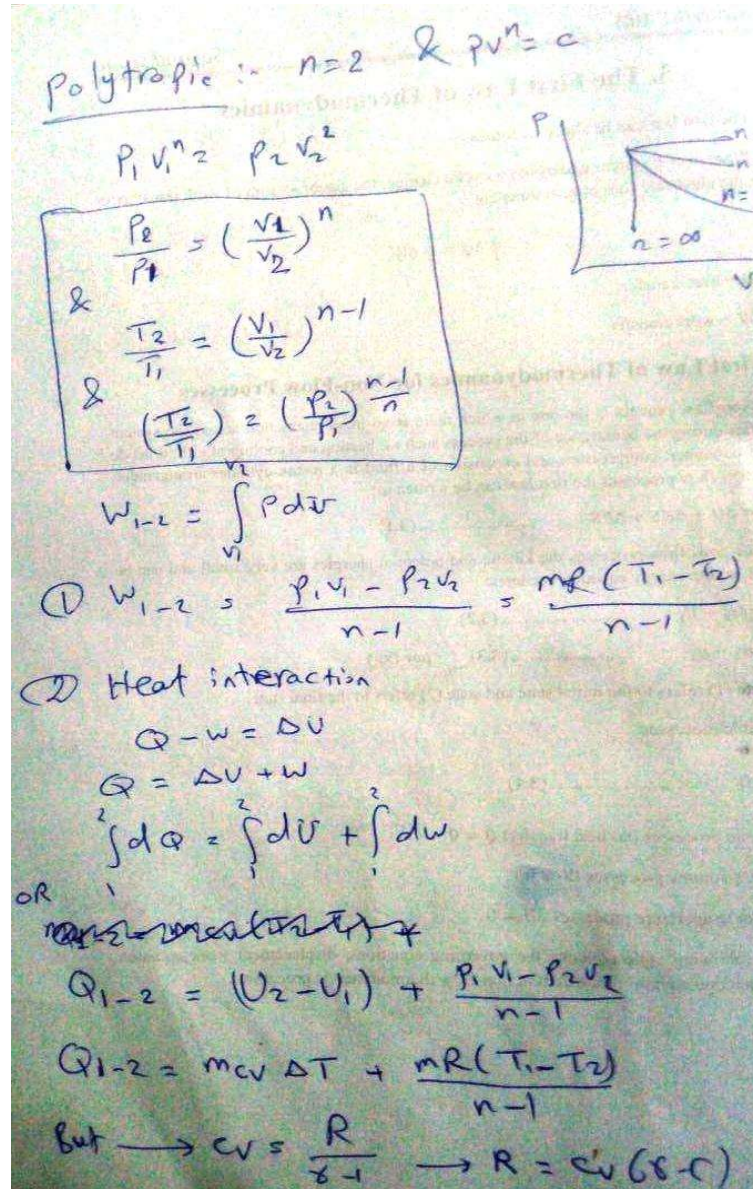 Polytropic :- n=2 & pvⁿ = c
P₁ V₁ⁿ = P₂ V₂²
P₂/P₁ = (V1/V₂)ⁿ
&
T₂/T₁ = (V₁/V₂)ⁿ⁻¹
&
(T₂/T₁) = (P₂/P₁)^(n-1/n)
P
n
n
n=
n = ∞
V
W₁₋₂ = ∫ᵥ₁ᵛ² P dv
① W₁₋₂ = P₁V₁ - P₂V₂ / n-1 = mR (T₁-T₂) / n-1
② Heat interaction
Q - W = ΔU
Q = ΔU + W
₁∫² dQ = ₁∫² dU + ₁∫² dw
OR
Q₁₋₂ = (U₂-U₁) + P₁V₁-P₂V₂ / n-1
Q1-2 = mcv ΔT + mR(T₁-T₂) / n-1
But → cv = R / γ-1 → R = cv (γ-1)